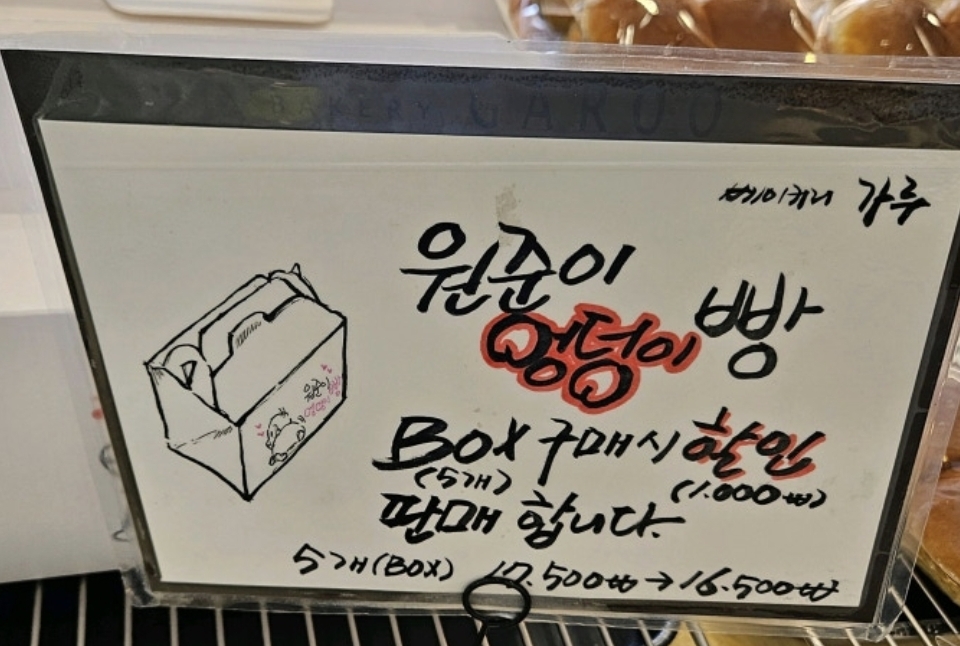 BAKERY GAROO
베이커리 가루
원준이
엉덩이 빵
원준이
엉덩이빵
BOX 구매시 할인
(5개) (1.000₩)
판매 합니다.
5개(BOX) 17.500₩→16.500₩